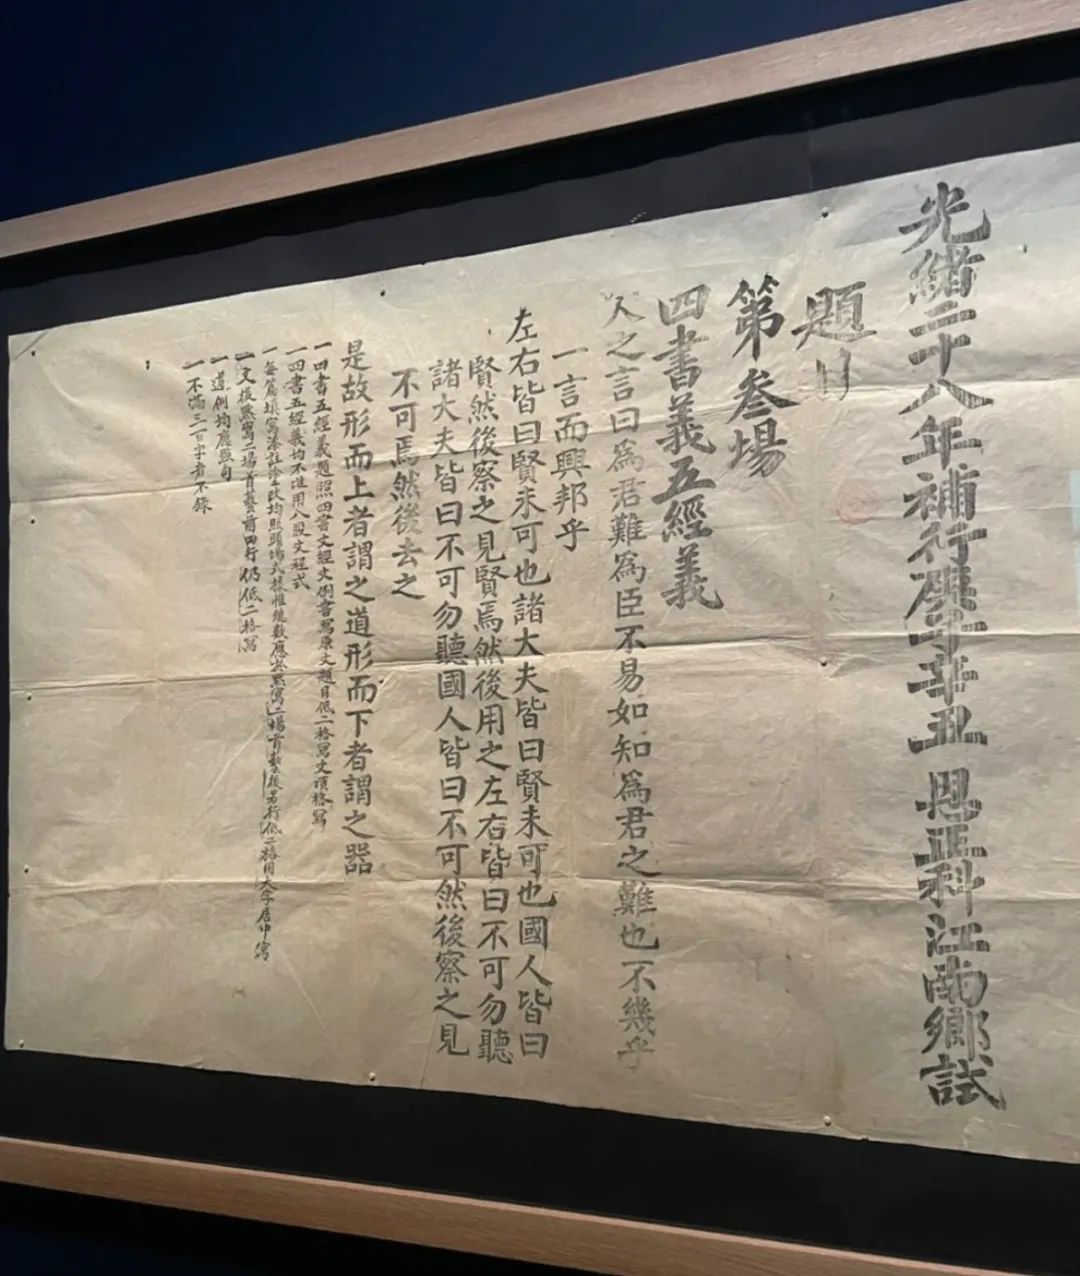 光緒二十八年補行庚子辛丑恩正科江南鄉試
題目
第叁場
四書義五經義
人之言曰爲君難爲臣不易如知爲君之難也不幾乎
一言而興邦乎
左右皆曰賢未可也諸大夫皆曰賢未可也國人皆曰
賢然後察之見賢焉然後用之左右皆曰不可勿聽
諸大夫皆曰不可勿聽國人皆曰不可然後察之見
不可焉然後去之
是故形而上者謂之道形而下者謂之器
一四書五經義題照四書文經文例書寫原文題目低二格寫文頂格寫
一四書五經義均不准用八股文程式
一每篇填寫添註塗改均照頭場式樣惟總數應於默寫二場首藝後另行低二格用大字居中寫
一文後默寫二場首藝前四行仍低二格寫
一違例均應貼
一不滿三百字者不錄